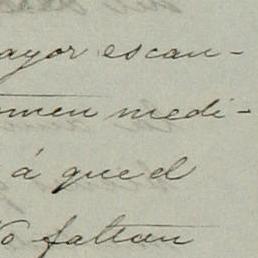 ayor escan-
omen medi-
á que el
No faltan